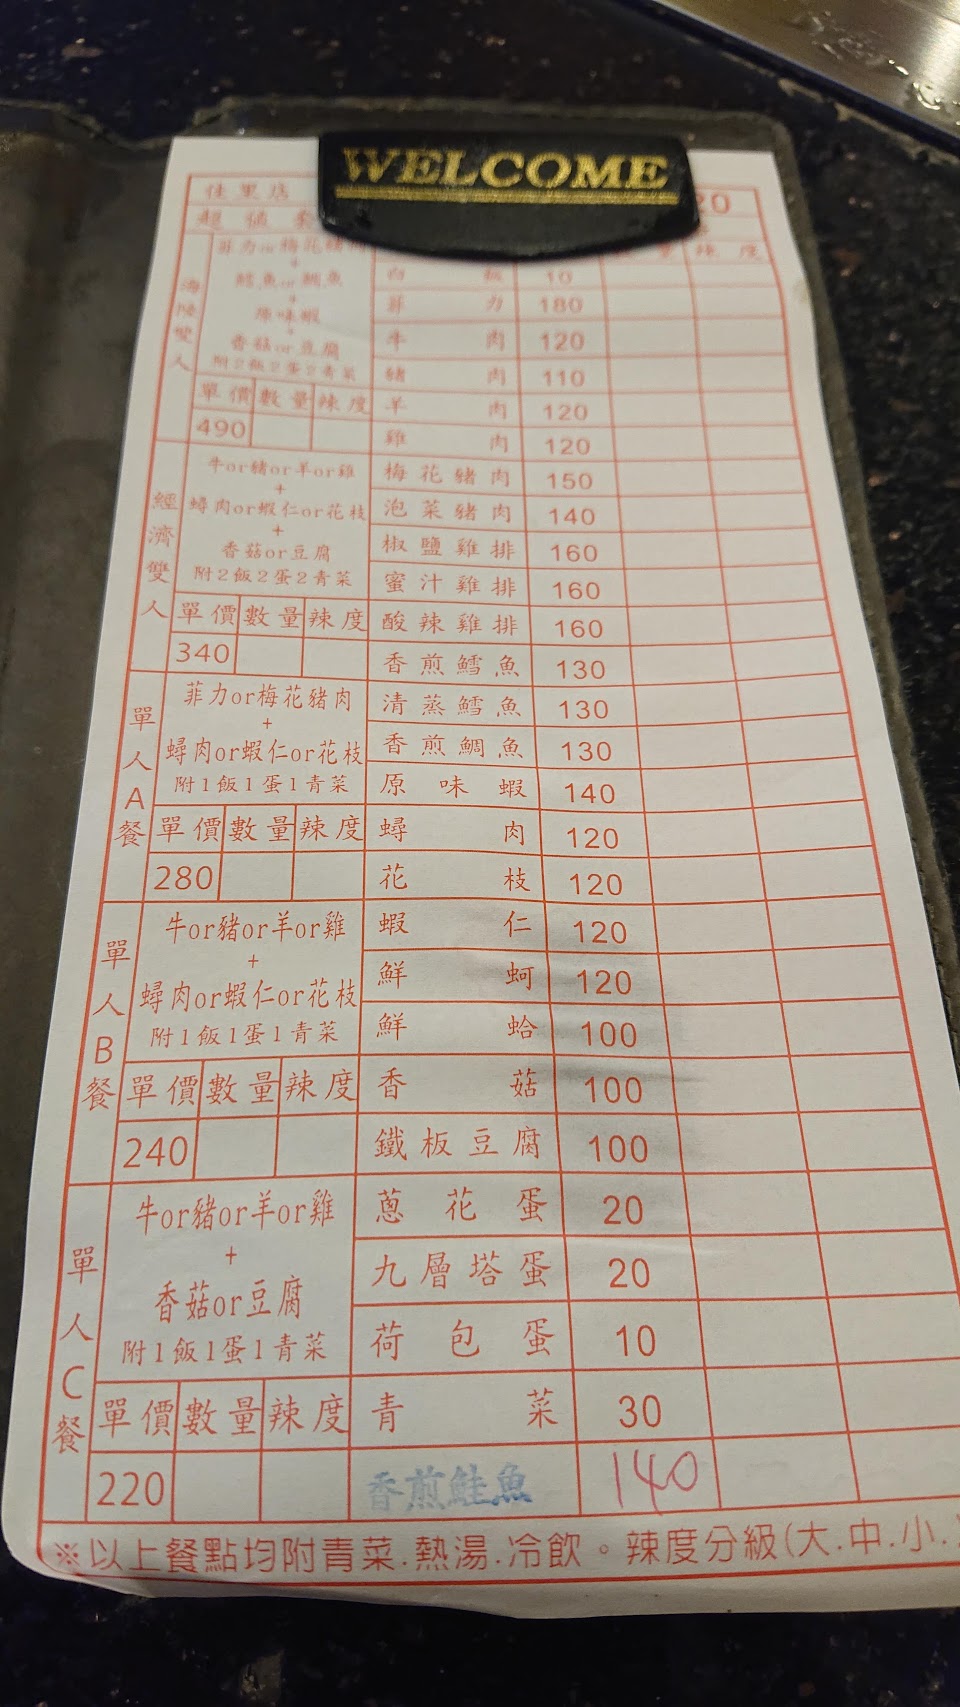 WELCOME
佳里店
20
超值套
數量 辣度
海陸雙人
菲力or梅花豬肉
+
鱈魚or鯛魚
+
原味蝦
+
香菇or豆腐
附2飯2蛋2青菜
單價 數量 辣度
490
經濟雙人
牛or豬or羊or雞
+
蟳肉or蝦仁or花枝
+
香菇or豆腐
附2飯2蛋2青菜
單價 數量 辣度
340
單人A餐
菲力or梅花豬肉
+
蟳肉or蝦仁or花枝
附1飯1蛋1青菜
單價 數量 辣度
280
單人B餐
牛or豬or羊or雞
+
蟳肉or蝦仁or花枝
附1飯1蛋1青菜
單價 數量 辣度
240
單人C餐
牛or豬or羊or雞
+
香菇or豆腐
附1飯1蛋1青菜
單價 數量 辣度
220
白飯 10
菲力 180
牛肉 120
豬肉 110
羊肉 120
雞肉 120
梅花豬肉 150
泡菜豬肉 140
椒鹽雞排 160
蜜汁雞排 160
酸辣雞排 160
香煎鱈魚 130
清蒸鱈魚 130
香煎鯛魚 130
原味蝦 140
蟳肉 120
花枝 120
蝦仁 120
鮮蚵 120
鮮蛤 100
香菇 100
鐵板豆腐 100
蔥花蛋 20
九層塔蛋 20
荷包蛋 10
青菜 30
香煎鮭魚 140
※以上餐點均附青菜.熱湯.冷飲。辣度分級(大.中.小.